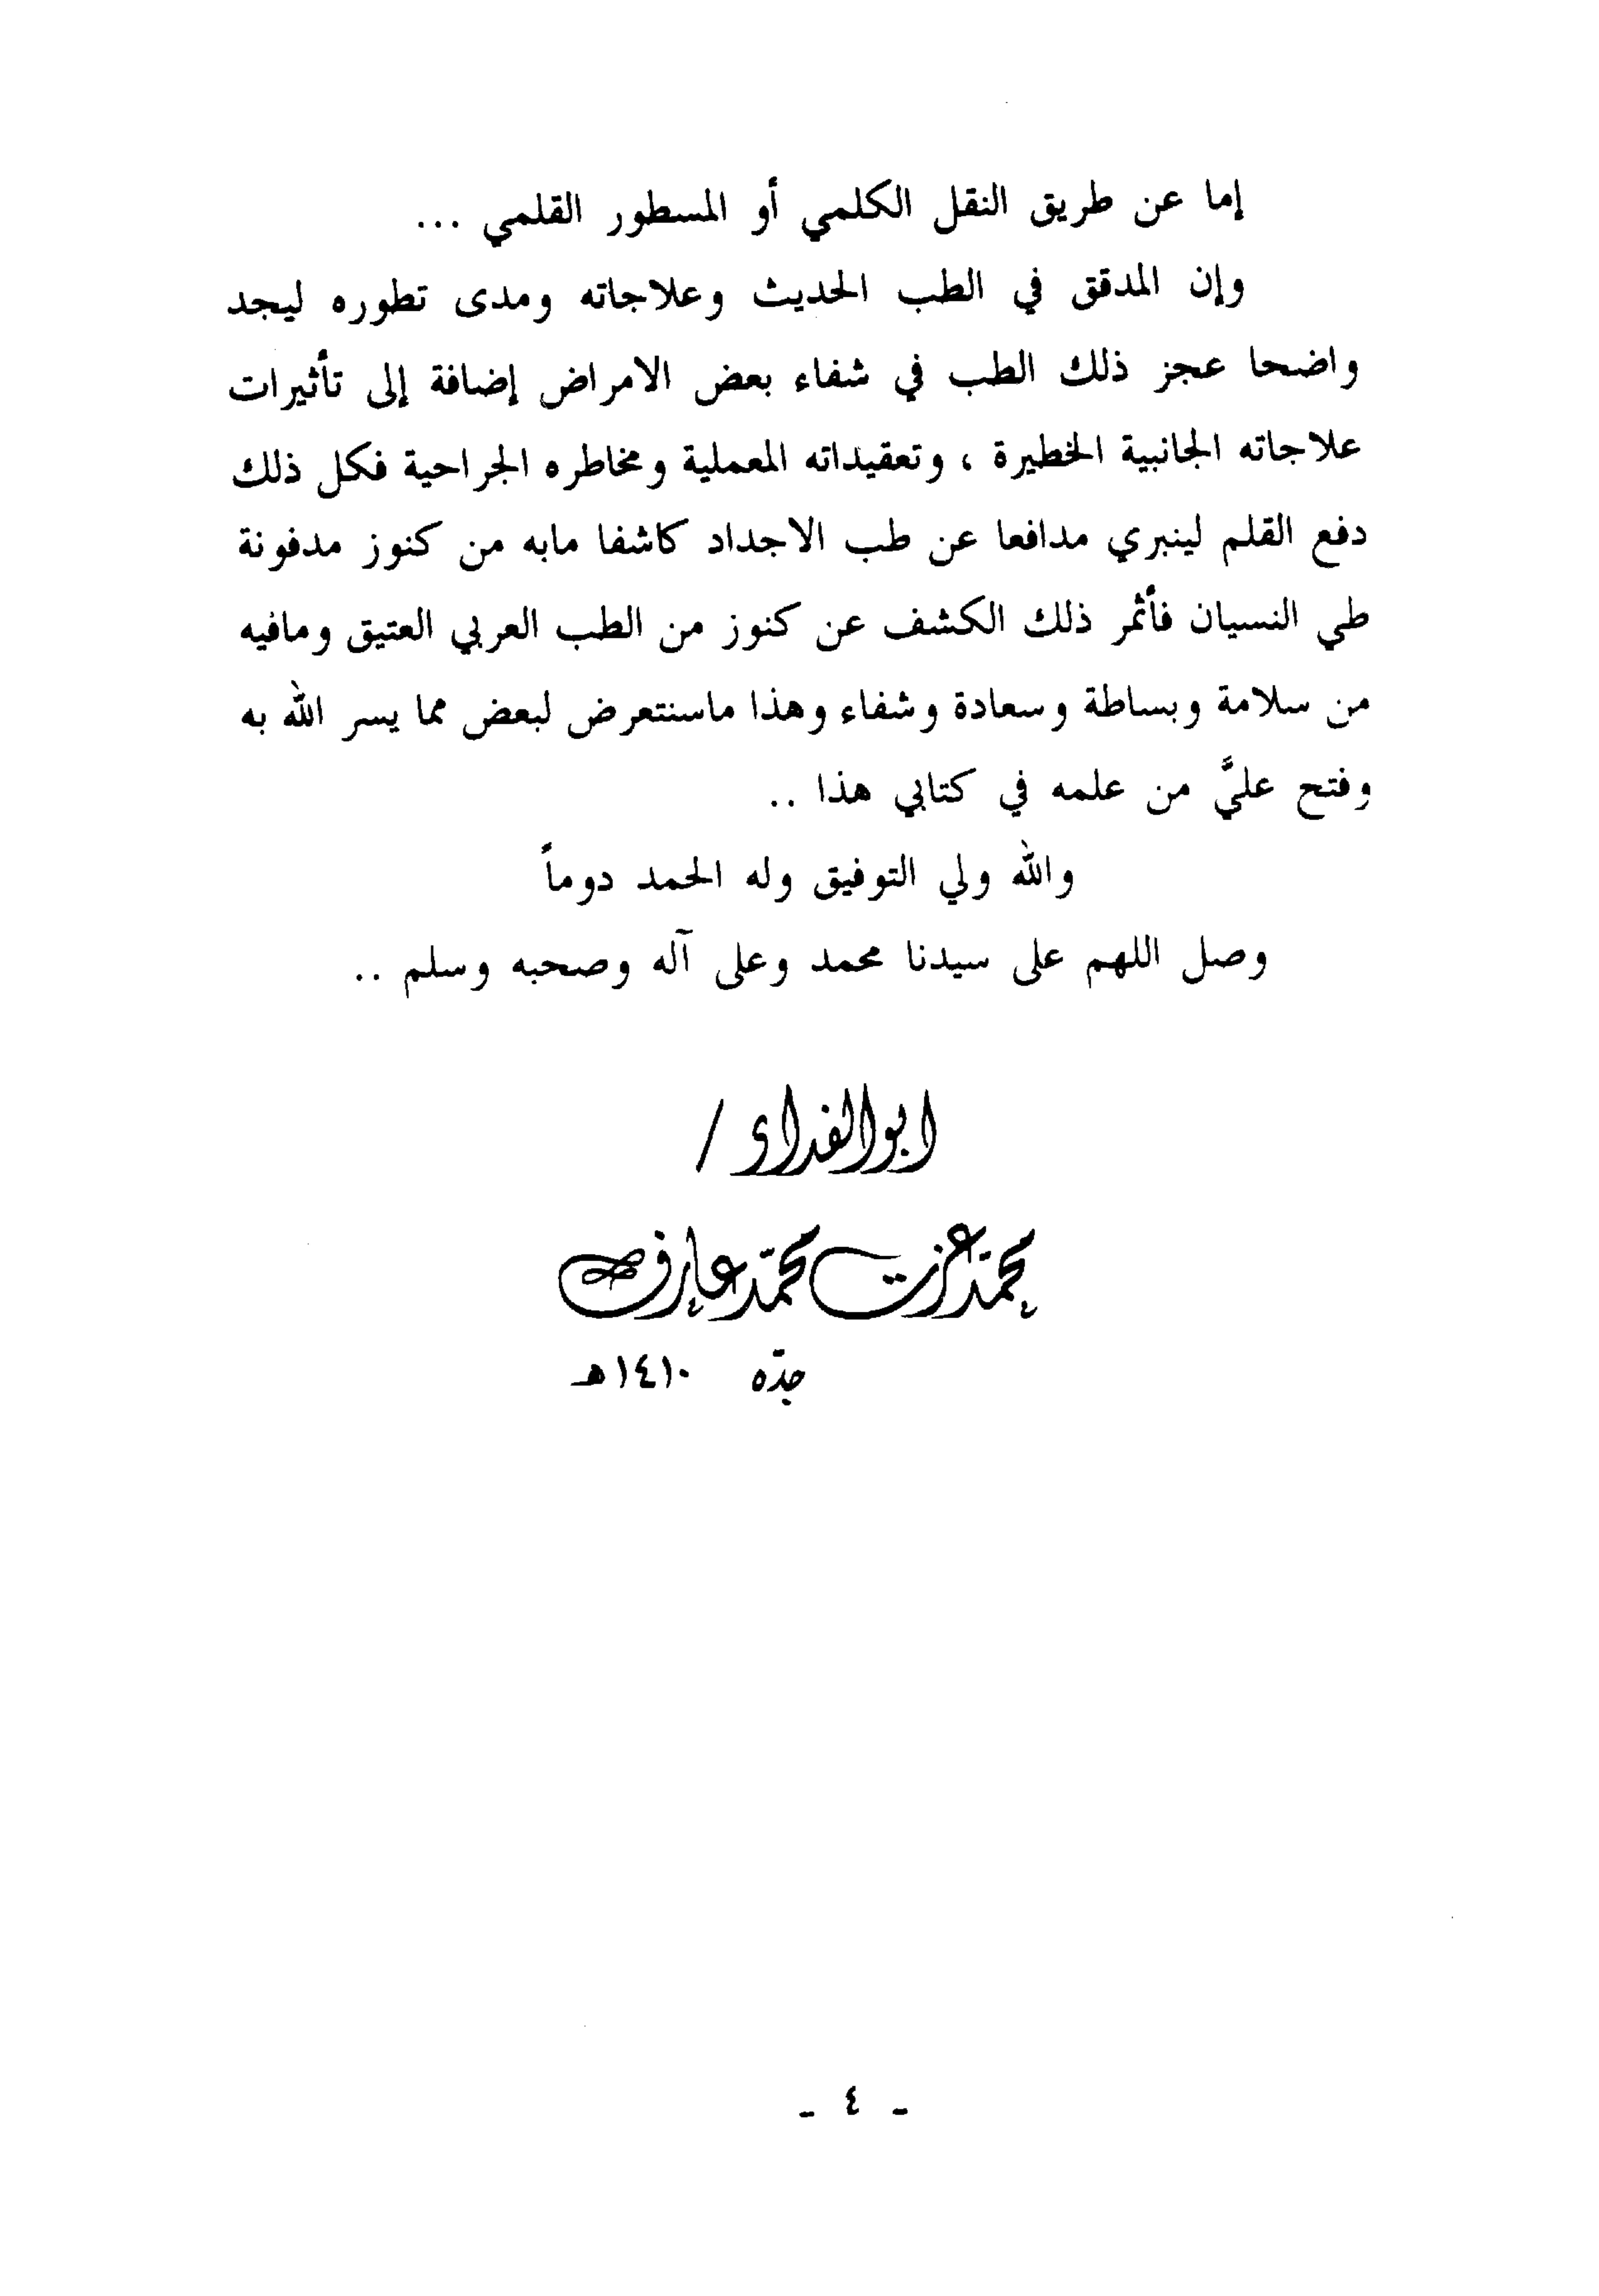 إما عن طريق النقل الكلمي أو المسطور القلمي ...
وإن المدقق في الطب الحديث وعلاجاته ومدى تطوره ليجد
واضحا عجز ذلك الطب في شفاء بعض الامراض إضافة إلى تأثيرات
علاجاته الجانبية الخطيرة ، وتعقيداته المعملية ومخاطره الجراحية فكل ذلك
دفع القلم لينبري مدافعا عن طب الاجداد كاشفا مابه من كنوز مدفونة
طي النسيان فأثمر ذلك الكشف عن كنوز من الطب العربي العتيق ومافيه
من سلامة وبساطة وسعادة وشفاء وهذا ماسنتعرض لبعض مما يسر الله به
وفتح عليَّ من علمه في كتابي هذا ..
والله ولي التوفيق وله الحمد دوماً
وصل اللهم على سيدنا محمد وعلى آله وصحبه وسلم ..
ابو الفداء /
محمّد عزت محمّد عارف
جدّه ١٤١٠هـ
- ٤ -